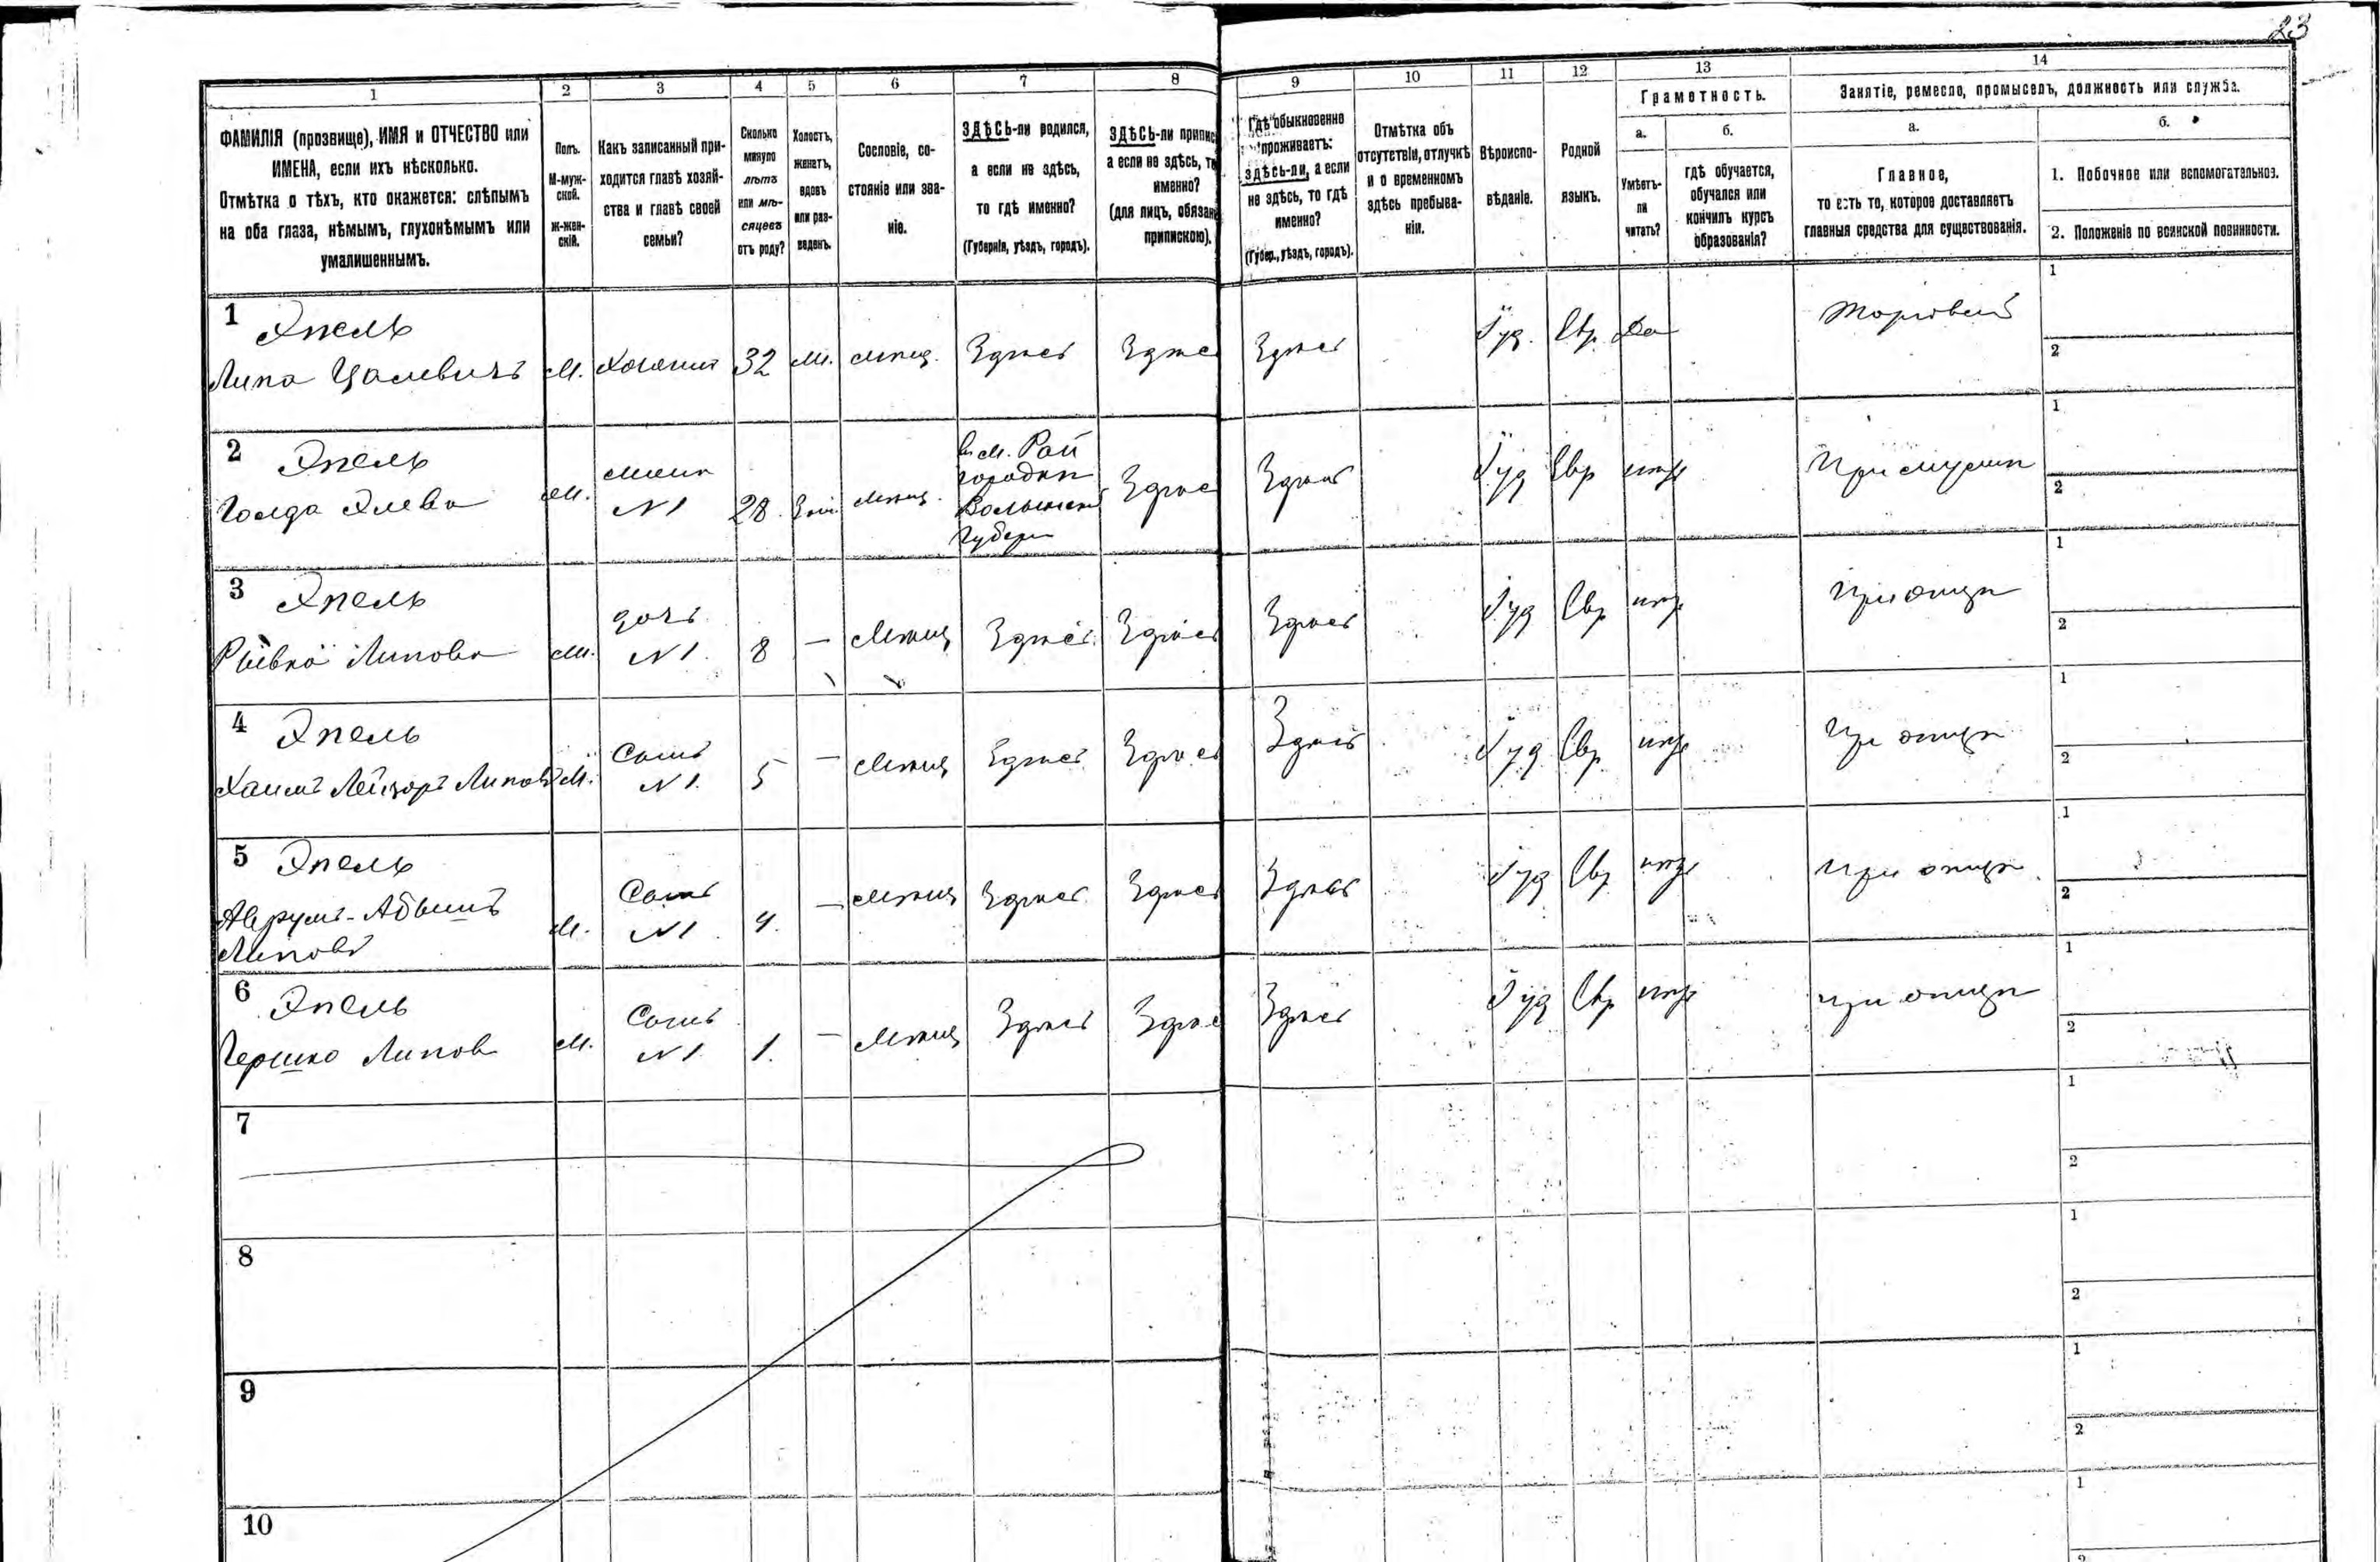 23
1 2 3 4 5 6 7 8 9 10 11 12 13 14
ФАМИЛІЯ (прозвище), ИМЯ и ОТЧЕСТВО или
ИМЕНА, если ихъ нѣсколько.
Отмѣтка о тѣхъ, кто окажется: слѣпымъ
на оба глаза, нѣмымъ, глухонѣмымъ или
умалишеннымъ.
Полъ.
М-муж-
ской.
Ж-жен-
скій.
Какъ записанный при-
ходится главѣ хозяй-
ства и главѣ своей
семьи?
Сколько
минуло
лѣтъ
или мѣ-
сяцевъ
отъ роду?
Холостъ,
женатъ,
вдовъ
или раз-
веденъ.
Сословіе, со-
стояніе или зва-
ніе.
ЗДѢСЬ-ли родился,
а если не здѣсь,
то гдѣ именно?
(Губернія, уѣздъ, городъ).
ЗДѢСЬ-ли припис
а если не здѣсь, т
именно?
(для лицъ, обязан
припискою).
Гдѣ обыкновенно
проживаетъ:
здѣсь-ли, а если
не здѣсь, то гдѣ
именно?
(Губер., уѣздъ, городъ).
Отмѣтка объ
отсутствіи, отлучкѣ
и о временномъ
здѣсь пребыва-
ніи.
Вѣроиспо-
вѣданіе.
Родной
языкъ.
Грамотность.
а.
Умѣетъ-
ли
читать?
б.
гдѣ обучается,
обучался или
кончилъ курсъ
образованія?
Занятіе, ремесло, промыселъ, должность или служба.
а.
Главное,
то есть то, которое доставляетъ
главныя средства для существованія.
б.
1. Побочное или вспомогательное.
2. Положеніе по воинской повинности.
1 Эпель
Липа М. Хозяинъ 32 мѣщ. Здѣсь Здѣсь Здѣсь Іуд. Евр. Да
1
2
2 Эпель
Голда
М.
жена
№ 1
28
мѣщ.
в м. Рай
городки
Волынской
Губерн
Здѣсь Здѣсь Іуд Евр нѣт При мужѣ
1
2
3 Эпель
Рывка Липова М.
дочь
№ 1.
8 — Мѣщ Здѣсь Здѣсь Здѣсь Іуд Евр нѣт При отцѣ
1
2
4 Эпель
Хаимъ Лейзоръ Липовъ М.
Сынъ
№ 1.
5 — Мѣщ Здѣсь Здѣсь Здѣсь Іуд Евр нѣт При отцѣ
1
2
5 Эпель
Аврумъ-Абышъ
Липовъ
М.
Сынъ
№ 1
4. — Мѣщ Здѣсь Здѣсь Здѣсь Іуд Евр нѣт При отцѣ
1
2
6 Эпель
Гершко Липов М.
Сынъ
№ 1.
1. — Мѣщ Здѣсь Здѣсь Здѣсь Іуд Евр нѣт При отцѣ
1
2
7
1
2
8
1
2
9
1
2
10
1
2